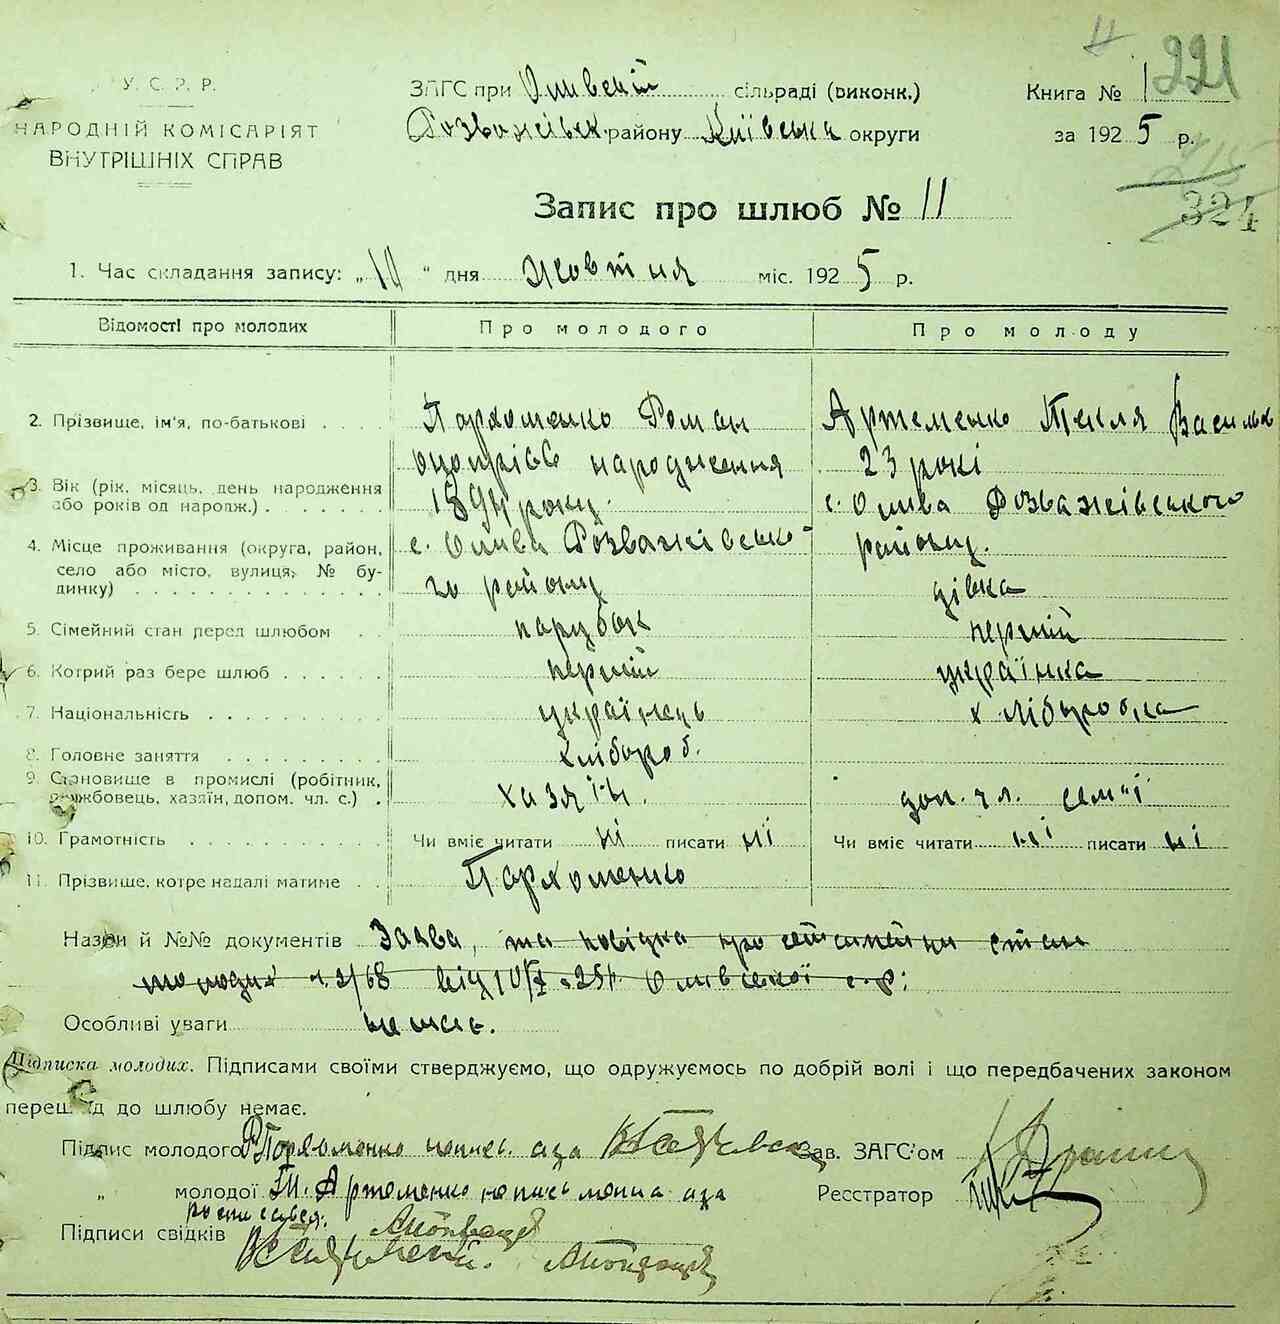 У. С. Р. Р.
НАРОДНІЙ КОМІСАРІЯТ
ВНУТРІШНІХ СПРАВ
ЗАГС при Оливській сільраді (виконк.)
Розважівськ. району Київська округи
Книга № 1 221
за 1925 р.
215
324
Запис про шлюб № 11
1. Час складання запису: „10“ дня Жовтня міс. 1925 р.
Відомості про молодих Про молодого Про молоду
2. Прізвище, ім'я, по-батькові . . . . Пархоменко Роман Артеменко Текля Васильє
народження 23 рокі
3. Вік (рік, місяць, день народження або років од народж.) . . . . . . 1894 року. с. Олива Розважівського
4. Місце проживання (округа, район, село або місто, вулиця, № будинку) . . . . . с. Олива Розважівсько- району.
го району дівка
5. Сімейний стан перед шлюбом . . парубок перший
6. Котрий раз бере шлюб . . . . . . перший українка
7. Національність . . . . . . . . . українець хліборобка
8. Головне заняття . . . . . . . . хлібороб.
9. Становище в промислі (робітник, службовець, хазяїн, допом. чл. с.) . хазяїн. доп. чл. сем"ї
10. Грамотність . . . . . . . . . . Чи вміє читати ні писати ні Чи вміє читати ні писати ні
11. Прізвище, котре надалі матиме . . Пархоменко
Назви й №№ документів Заява, та повідка про стан
молодих 2/68 від 10/X 25 р. Оливської с-р:
Особливі уваги немає.
Підписка молодих. Підписами своїми стверджуємо, що одружуємось по добрій волі і що передбачених законом
перешкод до шлюбу немає.
Підпис молодого Р Пархоменко непись. а за Зав. ЗАГС'ом
„ молодої Т. Артеменко неписьменна а за Реєстратор
росписався.
Підписи свідків